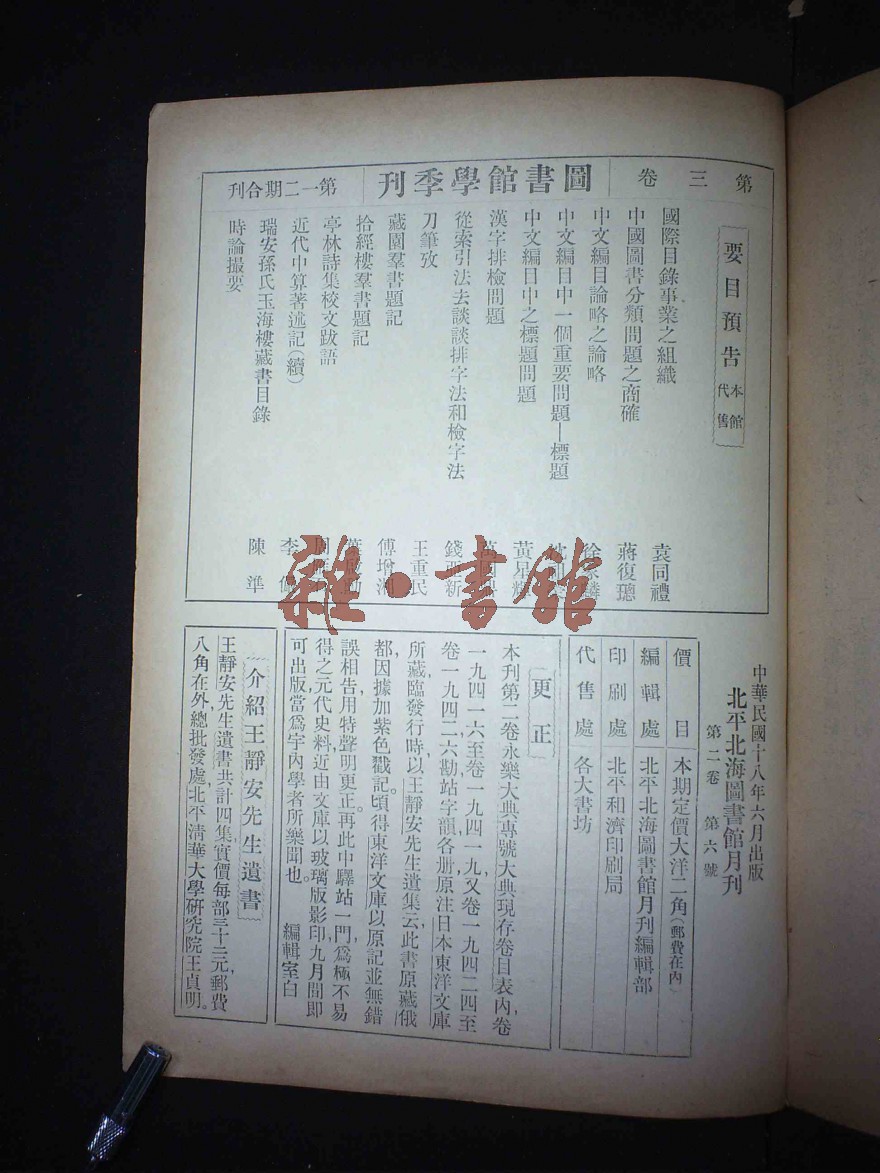 第三卷 圖書館學季刊 第一二期合刊
要目預告 本館代售
國際目錄事業之組織 袁同禮
中國圖書分類問題之商確 蔣復璁
中文編目論略之論略
中文編目中一個重要問題—標題
中文編目中之標題問題 黃星輝
漢字排檢問題
從索引法去談談排字法和檢字法 錢亞新
刀筆攷 王重民
藏園羣書題記 傅增湘
拾經樓羣書題記
亭林詩集校文跋語
近代中算著述記(續) 李儼
瑞安孫氏玉海樓藏書目錄 陳準
時論撮要
雜·書館
中華民國十八年六月出版
北平北海圖書館月刊
第二卷 第六號
價目 本期定價大洋二角(郵費在內)
編輯處 北平北海圖書館月刊編輯部
印刷處 北平和濟印刷局
代售處 各大書坊
更正
本刊第二卷永樂大典專號大典現存卷目表內,卷
一九四一六至卷一九四一九,又卷一九四二四至
卷一九四二六勘站字韻,各册原注日本東洋文庫
所藏,臨發行時,以王靜安先生遺集云,此書原藏俄
都,因據加紫色戳記。頃得東洋文庫以原記並無錯
誤相告,用特聲明更正。再此中驛站一門,爲極不易
得之元代史料,近由文庫以玻璃版影印,九月間即
可出版,當爲宇內學者所樂聞也。 編輯室白
介紹王靜安先生遺書
王靜安先生遺書共計四集,實價每部三十二元,郵費
八角在外,總批發處北平清華大學研究院王貞明。